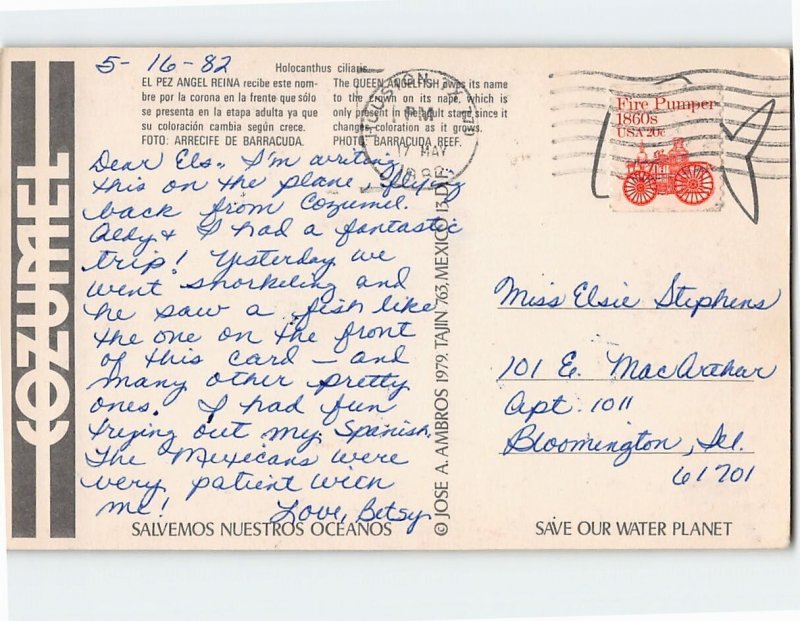 5-16-82
Holocanthus ciliaris
EL PEZ ANGEL REINA recibe este nom-
bre por la corona en la frente que sólo
se presenta en la etapa adulta ya que
su coloración cambia según crece.
FOTO: ARRECIFE DE BARRACUDA.
The QUEEN ANGELFISH owes its name
to the crown on its nape, which is
only present in the adult stage since it
changes coloration as it grows.
PHOTO: BARRACUDA REEF.
HOUSTON, TX
PM
17 MAY
1982
Fire Pumper
1860s
USA 20c
COZUMEL
Dear Els., I'm writing
this on the plane, flying
back from Cozumel.
& I had a fantastic
trip! Yesterday we
went snorkeling and
he saw a fish like
the one on the front
of this card — and
many other pretty
ones. I had fun
trying out my Spanish.
The Mexicans were
very patient with
me! Love, Betsy
© JOSE A. AMBROS 1979. TAJIN 763, MEXICO 13, D.F.
Miss Elsie Stephens
101 E. MacArthur
Apt. 1011
Bloomington, Ill.
61701
SALVEMOS NUESTROS OCEANOS
SAVE OUR WATER PLANET